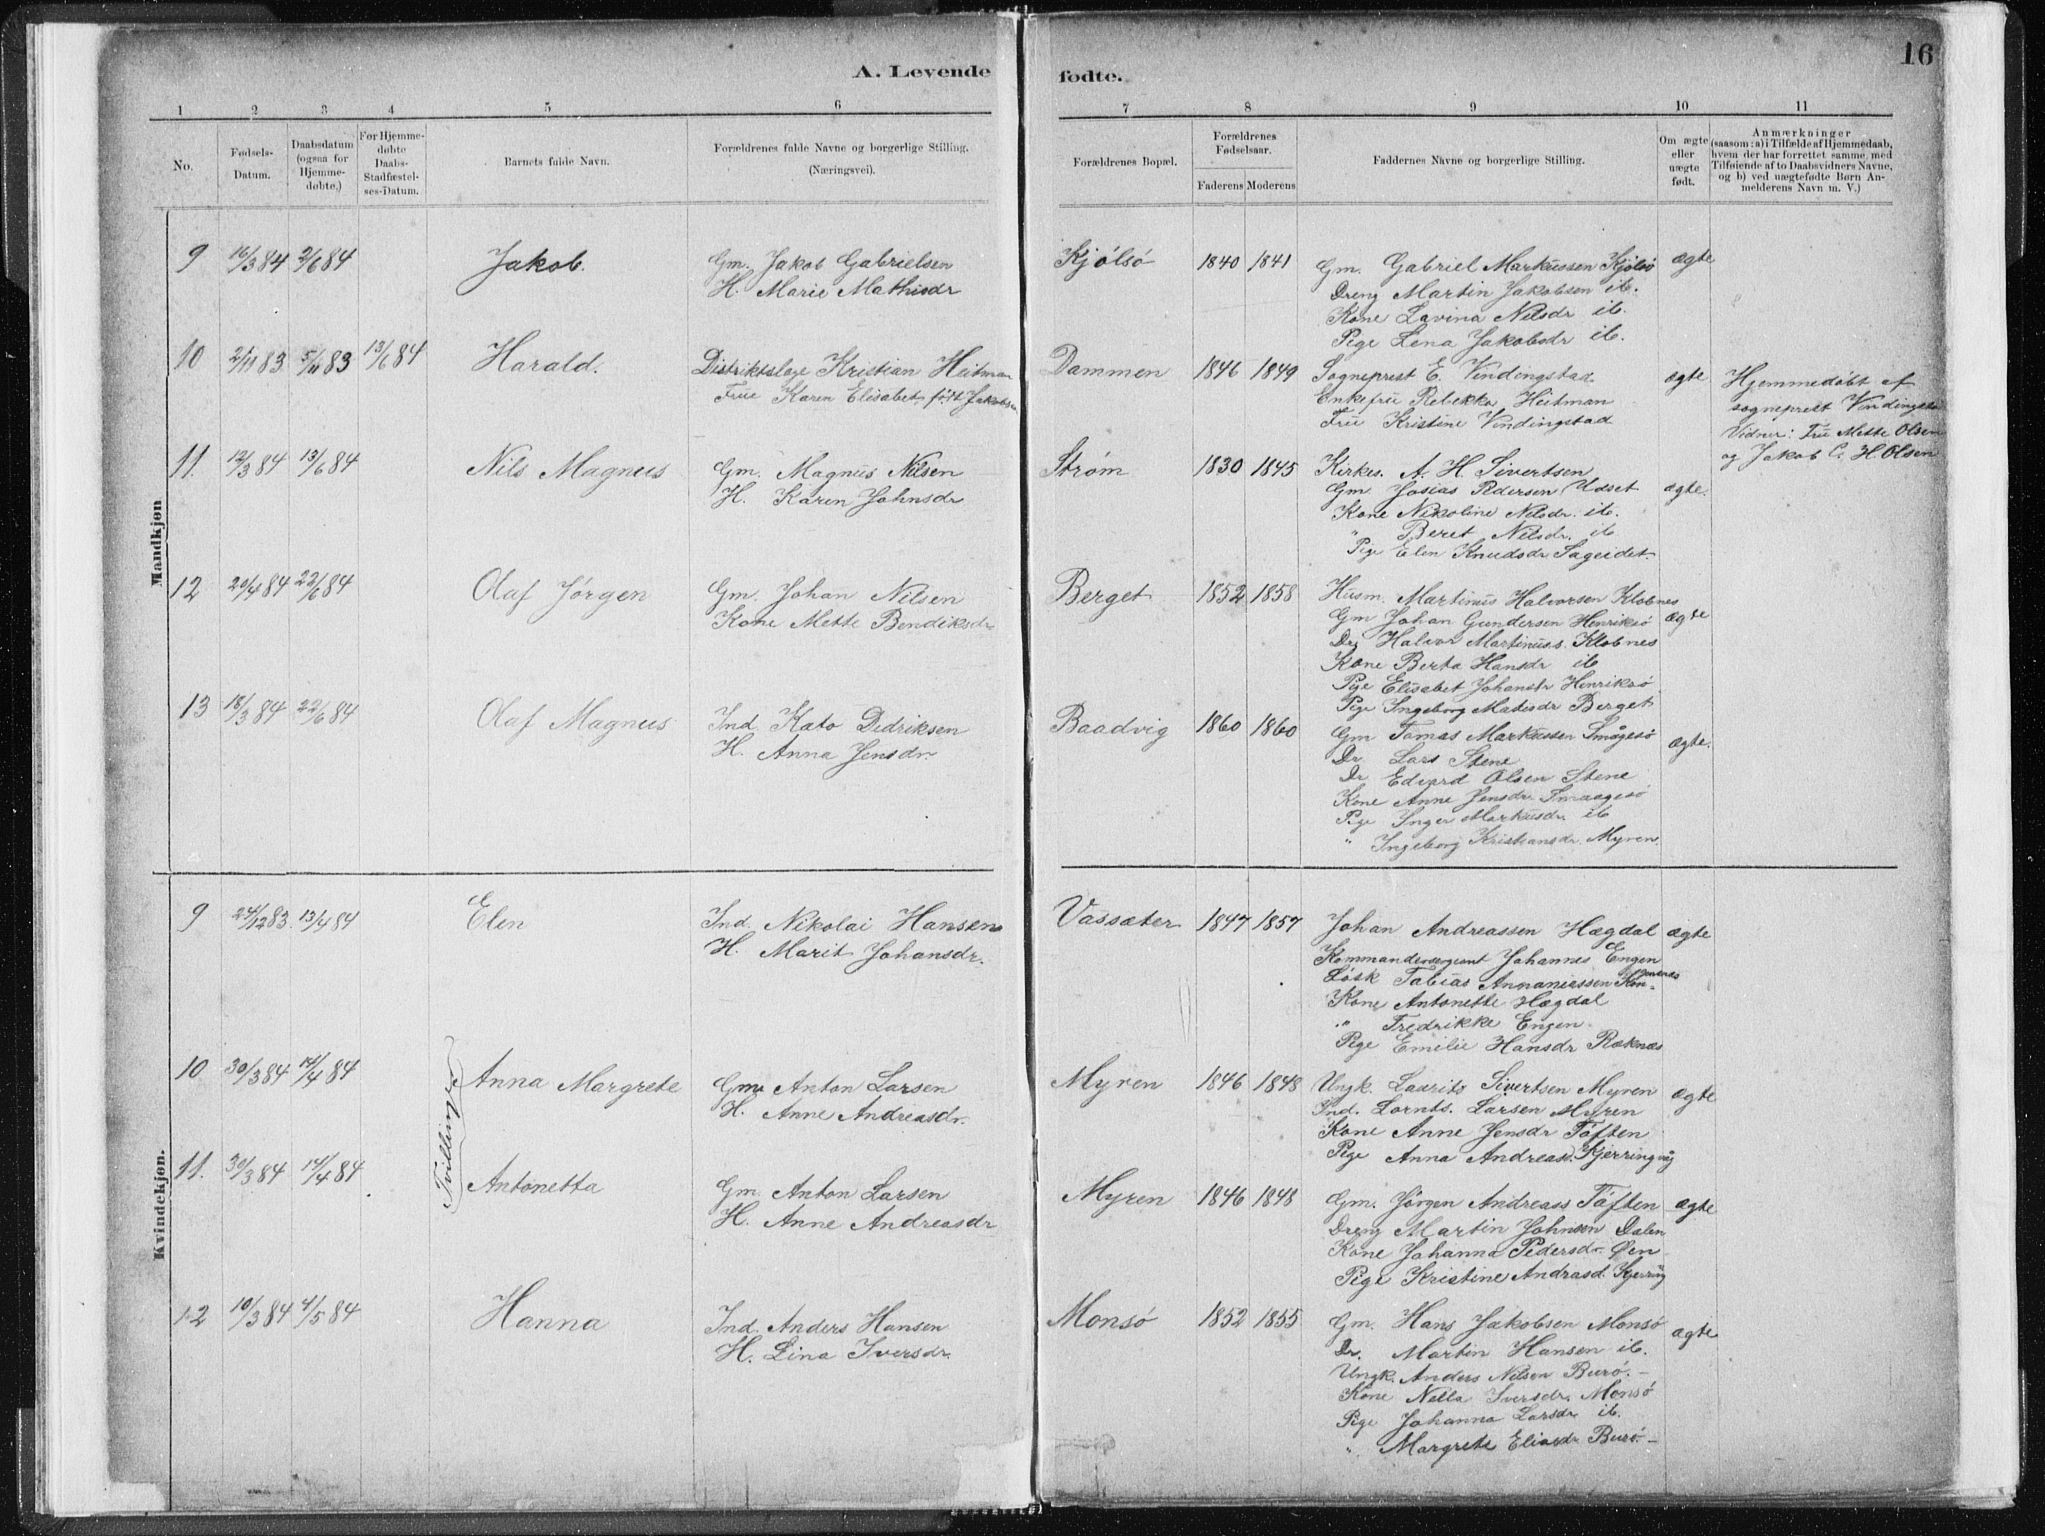 A. Levende fødte.
16
1 2 3 4 5 6 7 8 9 10 11
No.
Fødsels-Datum.
Daabsdatum (ogsaa for Hjemmedøbte.)
For Hjemmedøbte Daabs-Stadfæstelses-Datum.
Barnets fulde Navn.
Forældrenes fulde Navne og borgerlige Stilling. (Næringsvei).
Forældrenes Bopæl.
Forældrenes Fødselsaar.
Faderens Moderens
Faddernes Navne og borgerlige Stilling.
Om ægte eller uægte født.
Anmærkninger
(saasom: a) i Tilfælde af Hjemmedaab,
hvem der har forrettet samme, med
Tilføiende af to Daabsvidners Navne,
og b) ved uægtefødte Børn Anmelderens Navn m. V.)
Mandkjøn
9 16/3 84 2/6 84 Jakob.
Gm. Jakob Gabrielsen
H. Marie Mathisdr
Kjølsø 1840 1841
Gm. Gabriel Markussen Kjølsø ægte
Dreng Martin Jakobsen ib.
Kone Lavina Nilsdr ib.
Pige Lena Jakobsdr ib.
10 2/11 83 5/11 83 13/6 84 Harald.
Distriktslæge Kristian Heitman
Frue Karen Elisabet født Jakobsen
Dammen 1846 1849
Sogneprest E. Vindingstad ægte
Enkefru Rebekka Heitman
Fru Kristine Vindingstad
Hjemmedøbt af
sogneprest Vindingsta
Vidner: Fru Mette Olsen
og Jakob C. H. Olsen
11. 12/3 84 13/6 84 Nils Magnus
Gm. Magnus Nilsen
H. Karen Johnsdr
Strøm 1830 1845
Kirkes. A. H. Sivertsen
Gm. Josias Pedersen Udset ægte.
Kone Nikoline Nilsdr. ib.
" Beret Nilsdr. ib
Pige Elen Knudsdr Sageidet.
12 20/4 84 22/6 84 Olaf Jørgen
Gm. Johan Nilsen
Kone Mette Bendiksdr
Berget 1852 1858
Husm. Martinus Halvorsen Klobnes
Gm Johan Gundersen Henriksø ægte
Drg Halvor Martinuss. Klobnes
Kone Berta Hansdr ib
Pige Elisabet Johansdr Henriksø
Pige Ingeborg Matisdr Berget
13 18/3 84 22/6 84 Olaf Magnus
Ind. Kato Didriksen
H. Anna Jensdr.
Baadvig 1860 1860
Gm Tomas Markussen Smågesø ægte.
Dr. Lars Stene
Dr Edvard Olsen Stene
Kone Anne Jensdr. Smaagesø
Pige Inger Markusdr. ib
" Ingeborg Kristiansdr. Myren.
Kvindekjøn.
9 24/12 83. 13/4 84 Elen
Ind. Nikolai Hansen
H. Marit Johansdr.
Vassæter 1847 1857
Johan Andreassen Hægdal ægte
Kommandersergeant Johannes Engen
Løsk Tobias Annaniassen
Kone Antonette Hægdal
" Fredrikke Engen
Pige Emilie Hansdr Røknæs
Tvillinger
10 30/3 84 14/4 84 Anna Margrete
Gm. Anton Larsen
H. Anne Andreasdr.
Myren 1846 1848
Ungk. Laurits Sivertsen Myren ægte
Ind. Lornts. Larsen Myren
Kone Anne Jensdr Tøften
Pige Anna Andreasd. Kjerringvig
11. 30/3 84 14/4 84 Antonetta
Gm. Anton Larsen
H. Anne Andreasdr
Myren 1846 1848
Gm. Jørgen Andreass Tøften ægte
Dreng Martin Johnsen Dalen
Kone Johanna Pedersdr. Øen
Pige Kristine Andrasd. Kjerrvig
12 10/3 84 4/5 84 Hanna
Ind. Anders Hansen
H. Lina Iversdr.
Monsø 1852 1855
Gm. Hans Jakobsen Monsø ægte
Dr. Martin Hansen ib.
Ungk. Anders Nilsen Burø.
Kone Nella Iversdr. Monsø
Pige Johanna Larsdr ib.
" Margrete Eliasdr Burø.